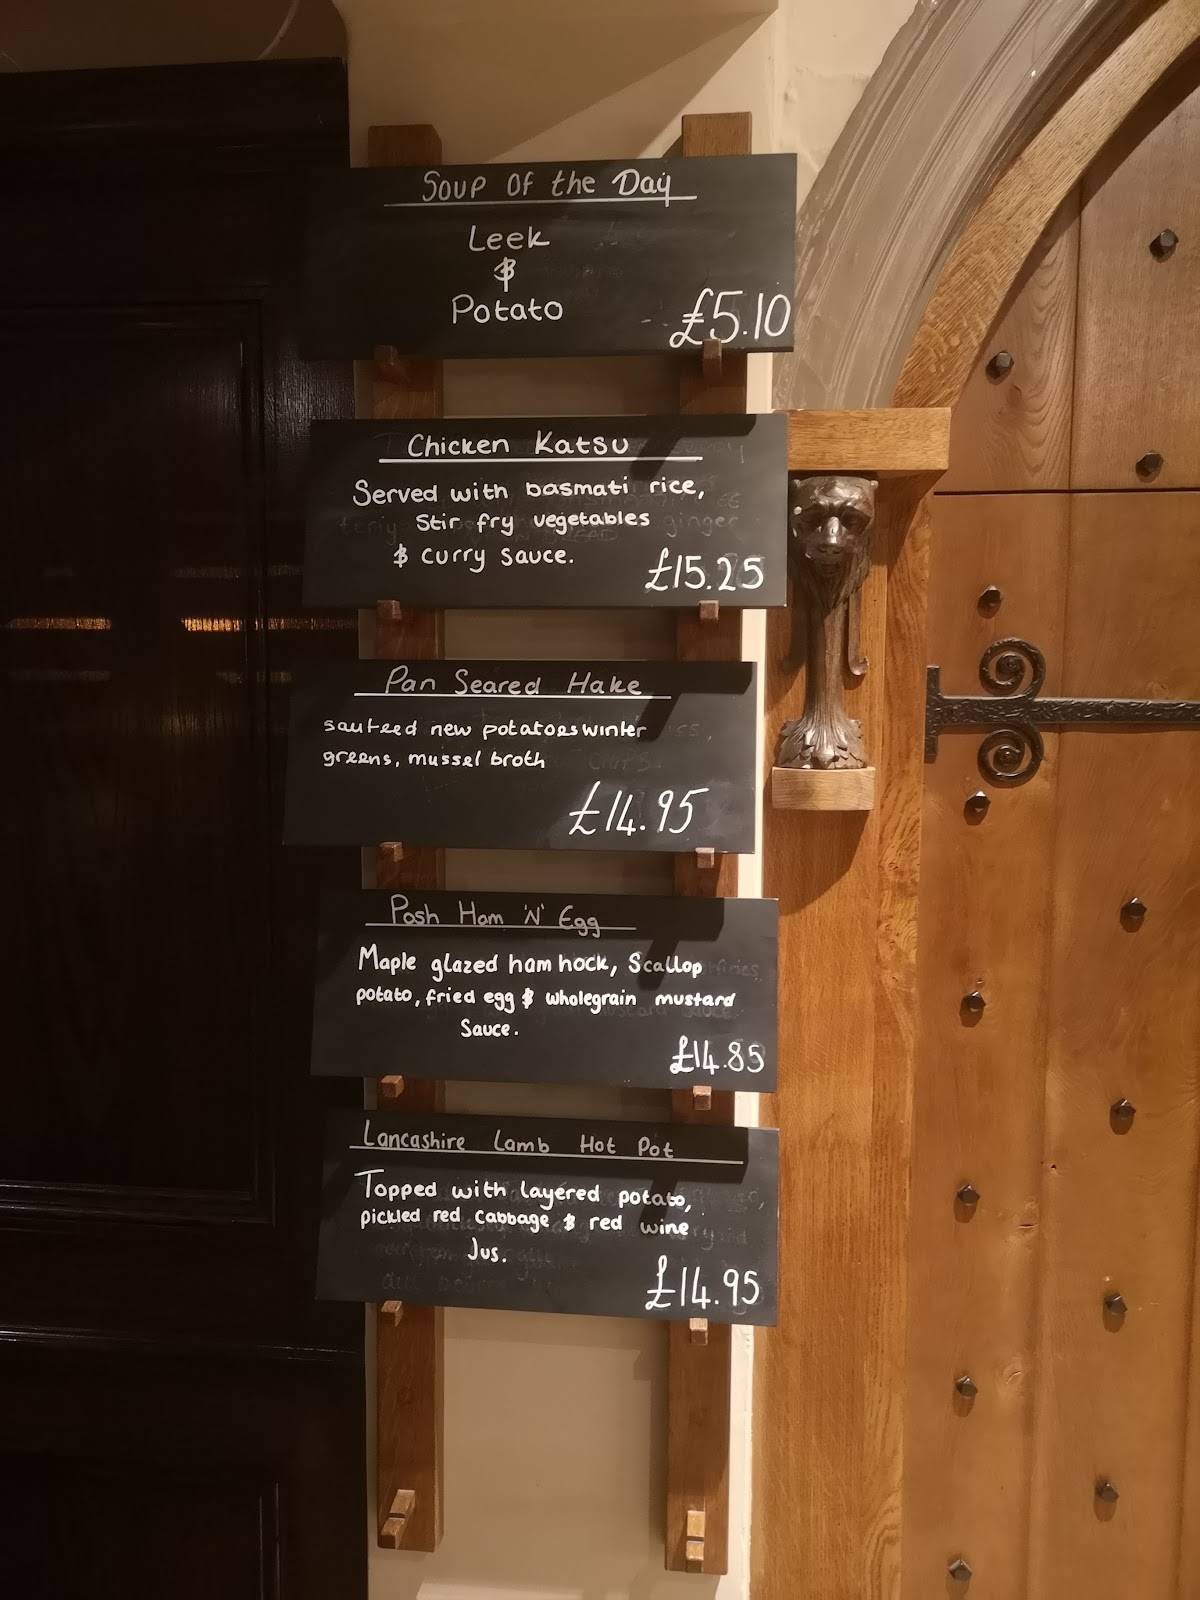 Soup Of the Day
Leek
&
Potato
£5.10
Chicken Katsu
Served with basmati rice,
Stir fry vegetables
& curry sauce.
£15.25
Pan Seared Hake
sauteed new potatoes winter
greens, mussel broth
£14.95
Posh Ham 'N' Egg
Maple glazed ham hock, Scallop
potato, fried egg & wholegrain mustard
Sauce.
£14.85
Lancashire Lamb Hot Pot
Topped with layered potato,
pickled red cabbage & red wine
Jus.
£14.95